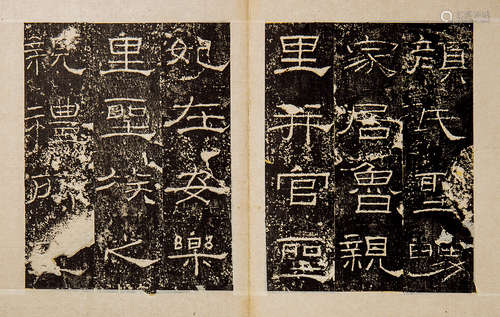 顏氏聖舅
家居魯親
里并官聖
妃在安樂
里聖族之
親禮所